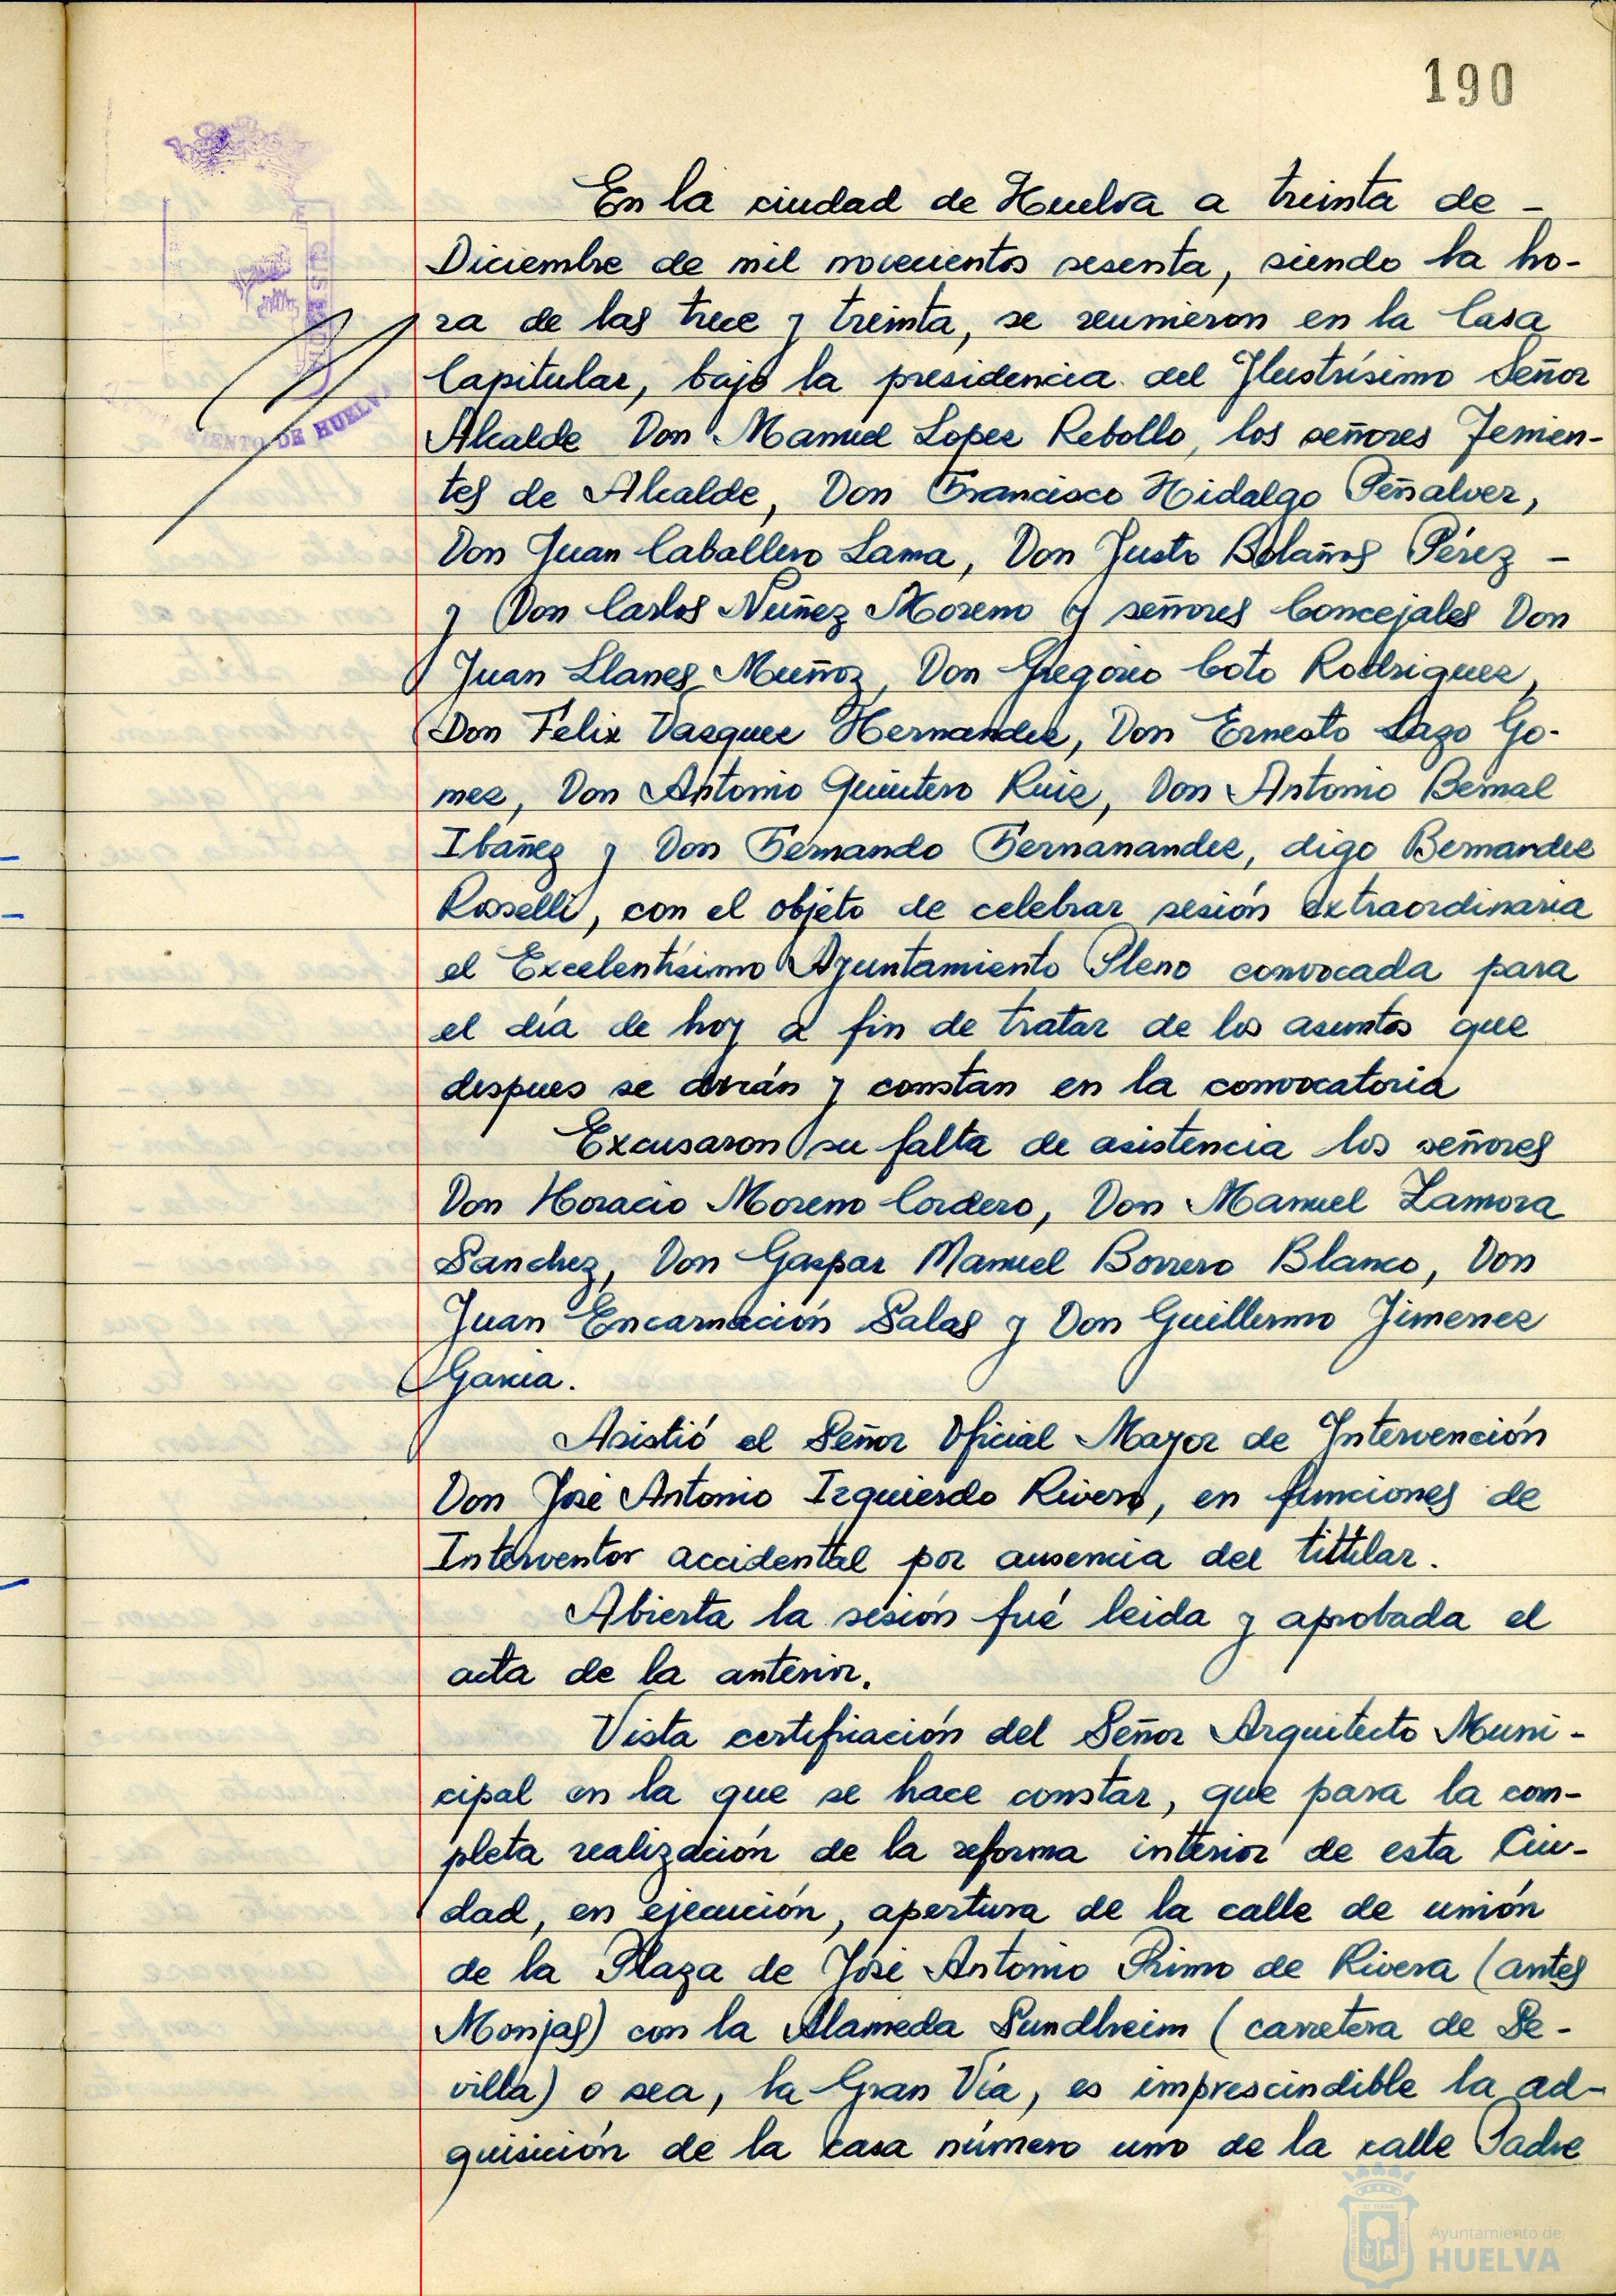 190
En la ciudad de Huelva a treinta de -
Diciembre de mil novecientos sesenta, siendo la ho-
ra de las trece y treinta, se reunieron en la Casa
Capitular, bajo la presidencia del Ilustrísimo Señor
Alcalde Don Manuel Lopez Rebollo, los señores Tenien-
tes de Alcalde, Don Francisco Hidalgo Peñalver,
Don Juan Caballero Lama, Don Justo Bolaños Pérez -
y Don Carlos Nuñez Moreno y señores Concejales Don
Juan Llanes Muñoz, Don Gregorio Coto Rodriguez,
Don Félix Vazquez Hernandez, Don Ernesto Lazo Go-
mez, Don Antonio Quintero Ruiz, Don Antonio Bernal
Ibañez y Don Fernando Fernanandez, digo Bernandez
Rosselli, con el objeto de celebrar sesión extraordinaria
el Excelentísimo Ayuntamiento Pleno convocada para
el día de hoy a fin de tratar de los asuntos que
despues se dirán y constan en la convocatoria
Excusaron su falta de asistencia los señores
Don Horacio Moreno Cordero, Don Manuel Zamora
Sanchez, Don Gaspar Manuel Borrero Blanco, Don
Juan Encarnación Salas y Don Guillermo Jimenez
Garcia.
Asistió el Señor Oficial Mayor de Intervención
Don José Antonio Izquierdo Rivero, en funciones de
Interventor accidental por ausencia del tittilar.
Abierta la sesión fué leida y aprobada el
acta de la anterior.
Vista certificación del Señor Arquitecto Muni-
cipal en la que se hace constar, que para la com-
pleta realización de la reforma interior de esta Ciu-
dad, en ejecución, apertura de la calle de unión
de la Plaza de José Antonio Primo de Rivera (antes
Monjas) con la Alameda Sundheim (carretera de Se-
villa) o sea, la Gran Vía, es imprescindible la ad-
quisición de la casa número uno de la calle Padre
DE HUELVA
Ayuntamiento de
HUELVA